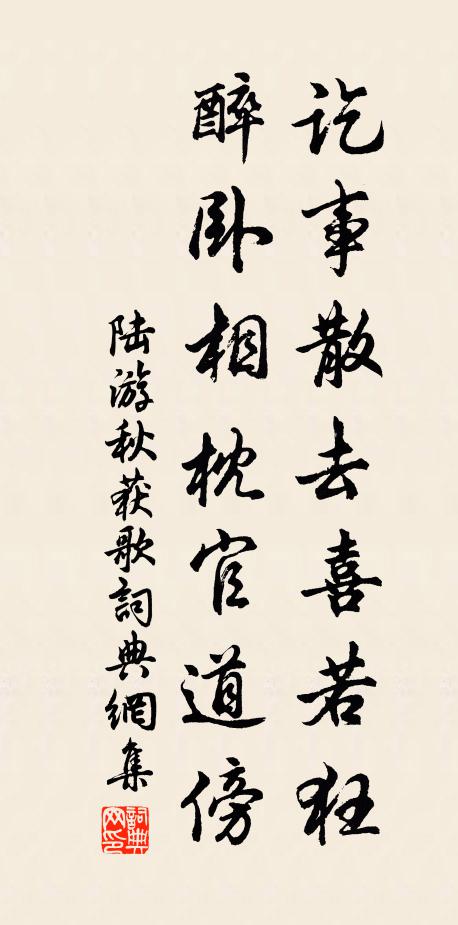 訖事散去喜若狂
醉卧相枕官道傍
陆游秋获歌詞典網集
詞典网印